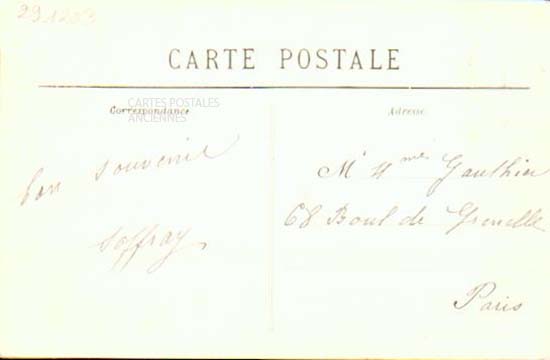 291203
CARTE POSTALE
CARTES POSTALES
ANCIENNES
Correspondance
Adresse
bon souvenir
Soffray
Mr & Mme Gauthier
68 Boul de Grenelle
Paris